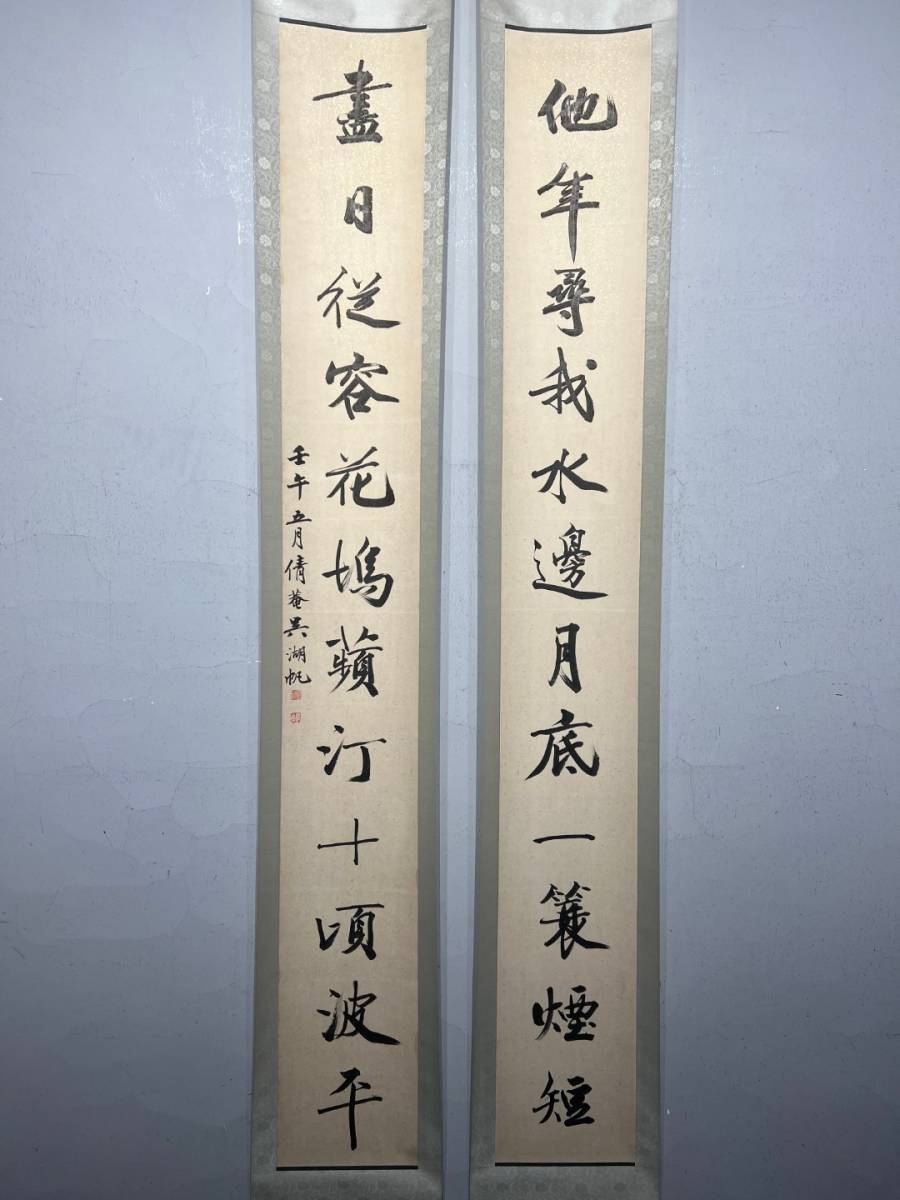 他年尋我水邊月底一蓑煙短
盡日從容花塢蘋汀十頃波平
壬午五月倩菴吳湖帆